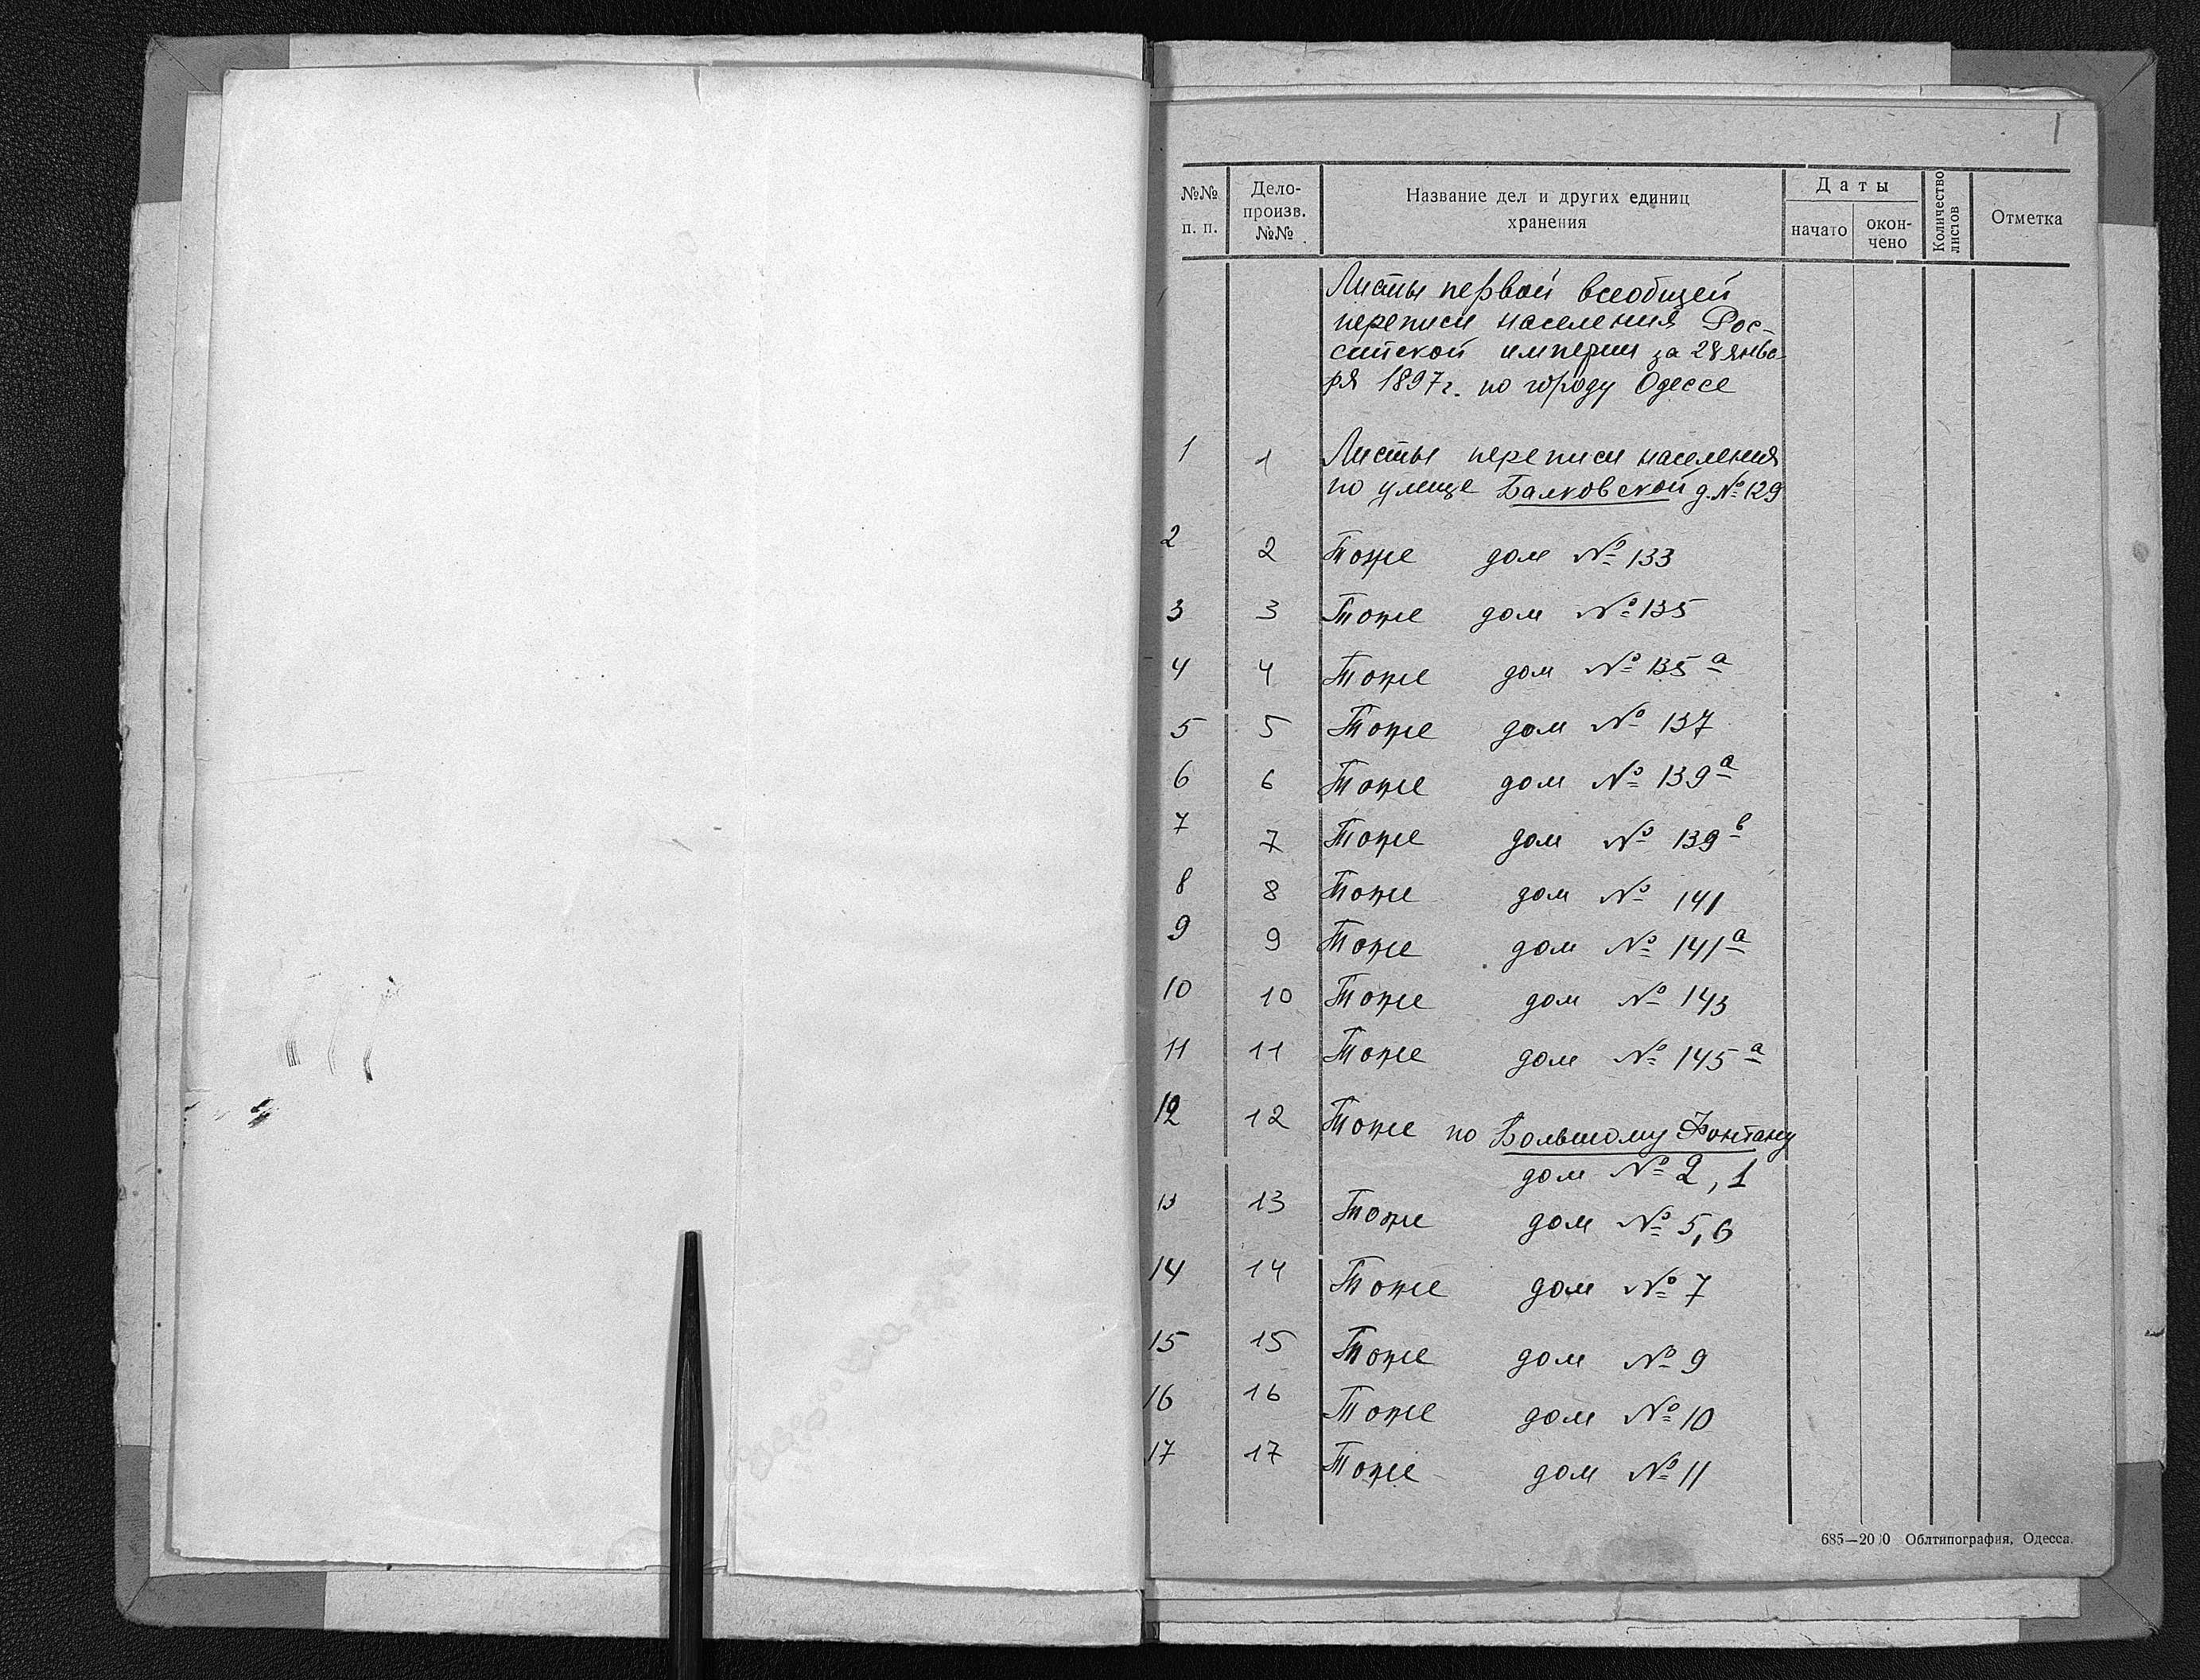 1
№№ п. п.
Дело-
произв.
№№
Название дел и других единиц
хранения
Даты
начато
окон-
чено
Количество
листов
Отметка
Листы первой всеобщей
переписи населения Рос-
сийской империи за 28 янва-
ря 1897 г. по городу Одессе
1 1 Листы переписи населения
по улице Балковской д. № 129
2 2 Тоже дом № 133
3 3 Тоже дом № 135
4 4 Тоже дом № 135 а
5 5 Тоже дом № 137
6 6 Тоже дом № 139 а
7 7 Тоже дом № 139 в
8 8 Тоже дом № 141
9 9 Тоже дом № 141 а
10 10 Тоже дом № 143
11 11 Тоже дом № 145 а
12 12 Тоже по Большому Фонтану
дом № 2, 1
13 13 Тоже дом № 5, 6
14 14 Тоже дом № 7
15 15 Тоже дом № 9
16 16 Тоже дом № 10
17 17 Тоже дом № 11
Облтипография, Одесса.